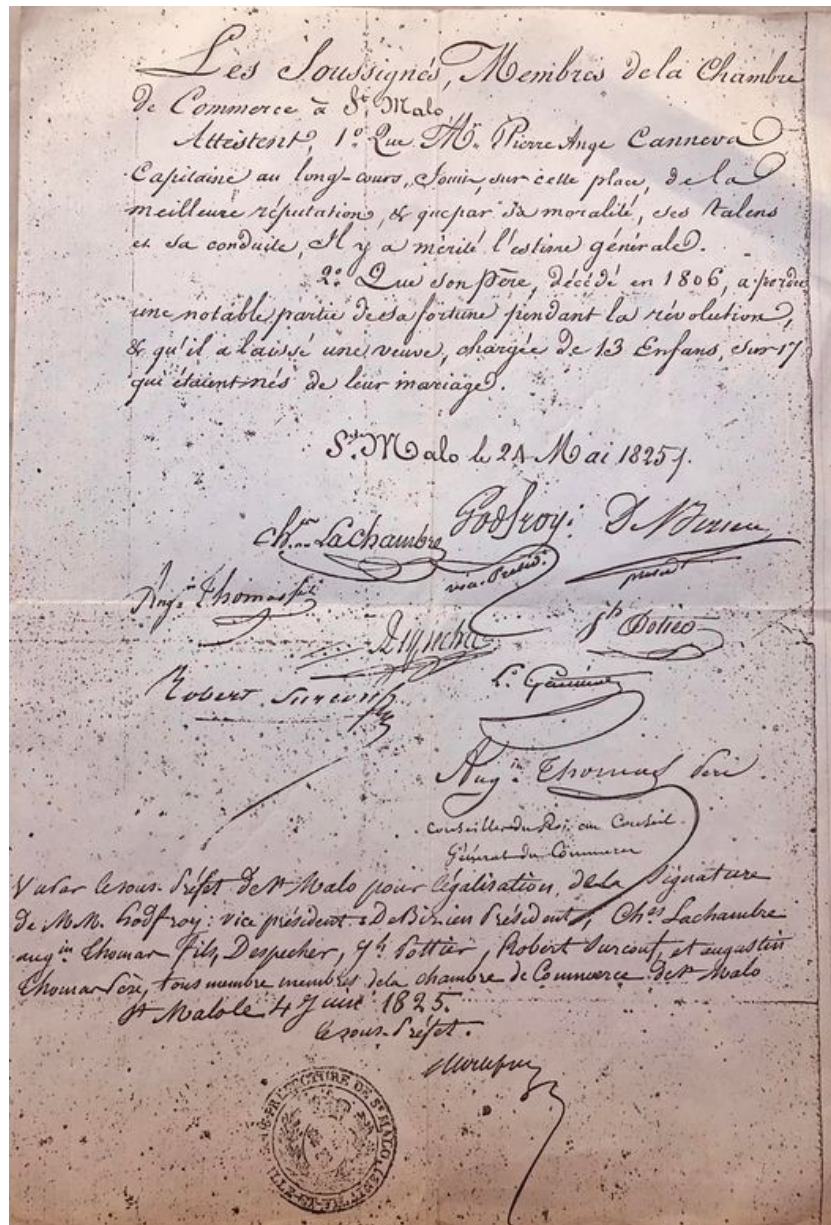 Les Soussignés, Membres de la Chambre
de Commerce à St. Malo
Attestent, 1º Que Mr. Pierre Ange Canneva
Capitaine au long-cours, Jouit, sur cette place, de la
meilleure réputation, & que par sa moralité, ses talens
et sa conduite, Il y a mérité l'estime générale.
2º Que son père, décédé en 1806, a perdu
une notable partie de sa fortune pendant la révolution,
& qu'il a laissé une veuve, chargée de 13 Enfans, sur 17
qui étaient nés de leur mariage.
St. Malo le 24 Mai 1825
Lachambre Godfroy
vice-Présid. présid
Augin Thomas fils
Robert Surcouf
Augin Thomas Père
Conseiller du Roi au Conseil
Général du Commerce
Vu par le sous-Préfet de St Malo pour légalisation de la Signature
de M.M. Godfroy: vice président; De Bizien Président; Ches Lachambre
augin Thomas fils, Despecher, Jh Pottier, Robert Surcouf, et augustin
Thomas Père, tous membre membres de la chambre de Commerce de St Malo
St Malo le 4 Juin 1825.
le sous-Préfet.
PREFECTURE DE ST MALO